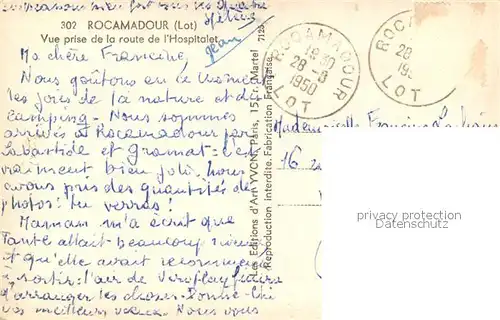 302 ROCAMADOUR (Lot)
Vue prise de la route de l'Hospitalet
Hélène
Jean
7125
Ma chère Francine,
Nous goûtons en ce moment
les joies de la nature et du
camping. Nous sommes
arrivés à Rocamadour par
Labastide et Gramat: c'est
vraiment bien joli. Nous
avons pris des quantités de
photos: tu verras!
Maman m'a écrit que
Tante allait beaucoup mieux
et qu'elle avait recommencé
à sortir: l'air de Viroflay
d'arranger les choses.
vos meilleurs vœux. Nous vous
Les Editions d'Art YVON, Paris, 15, r. Martel
Reproduction Interdite. Fabrication Française.
ROCAMADOUR
28-8
1950
LOT
ROCA
28
195
LOT
Mademoiselle
16
privacy protection
Datenschutz